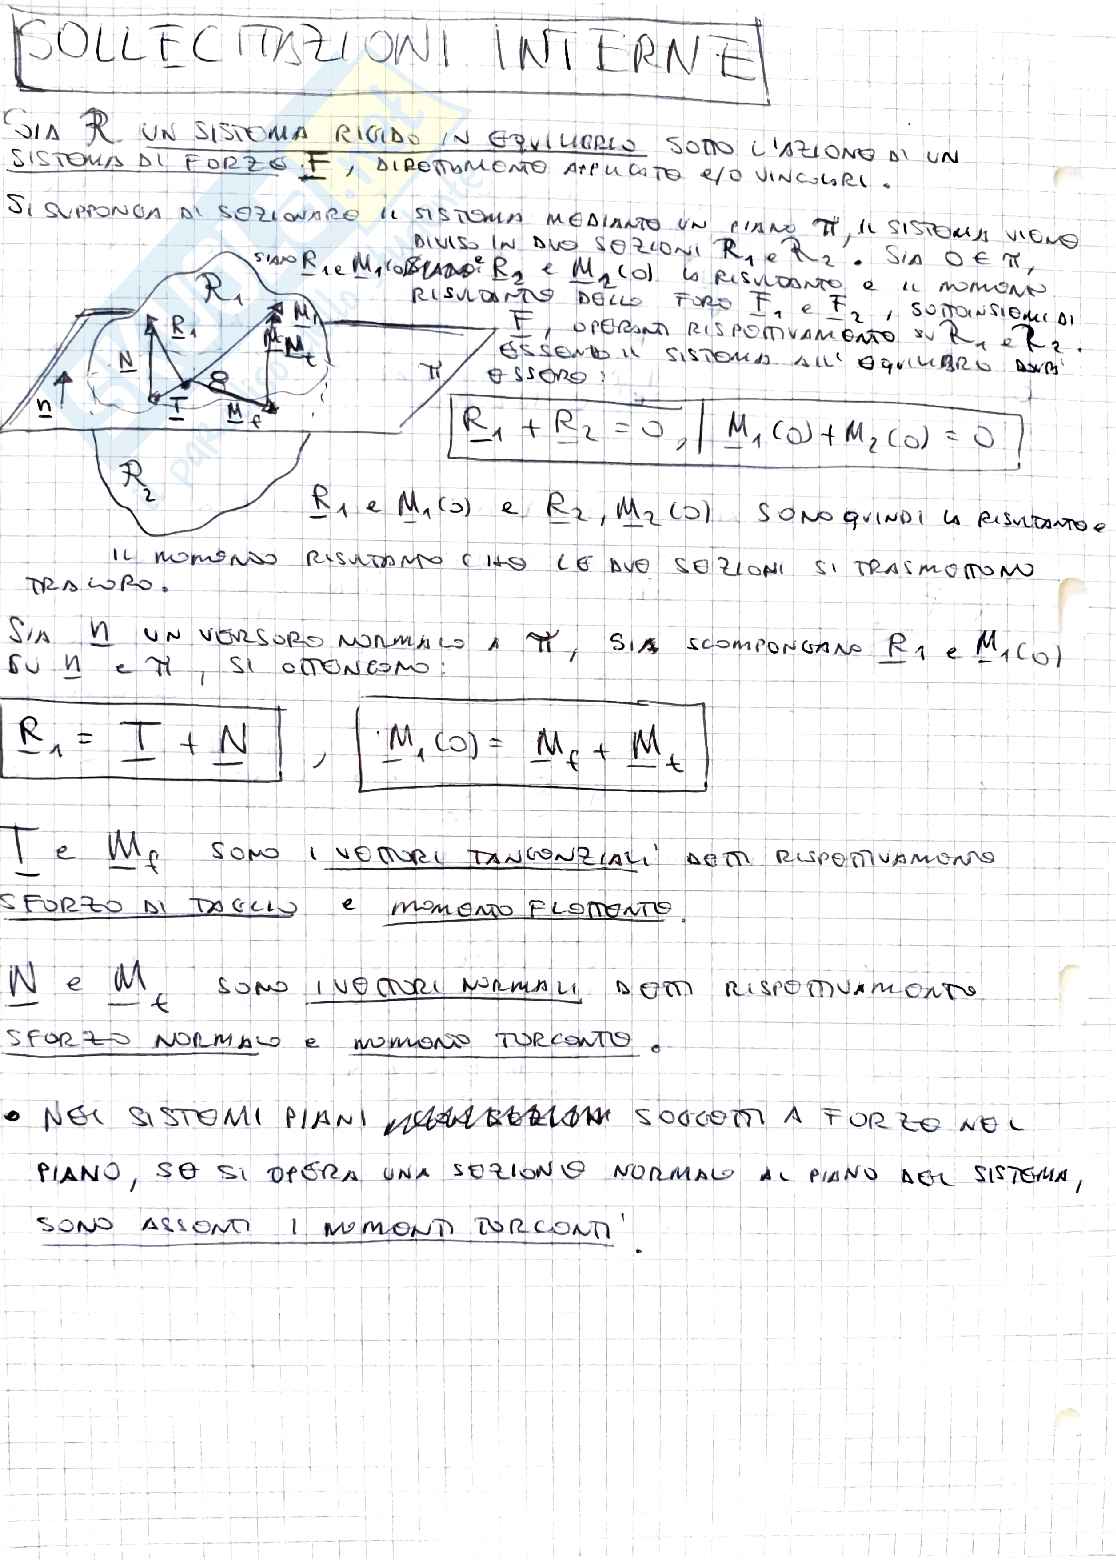 SOLLECITAZIONI INTERNE
SIA R UN SISTEMA RIGIDO IN EQUILIBRIO SOTTO L'AZIONE DI UN
SISTEMA DI FORZE F, DIRETTAMENTE APPLICATE E/O VINCOLARI.
SI SUPPONGA DI SEZIONARE IL SISTEMA MEDIANTE UN PIANO π, IL SISTEMA VIENE
DIVISO IN DUE SEZIONI R1 e R2. SIA O ∈ π,
SIANO R1 e M1(O) SIANO R2 e M2(O) LA RISULTANTE E IL MOMENTO
RISULTANTE DELLE FORZE F1 e F2, SOTTOINSIEMI DI
F, OPERANTI RISPETTIVAMENTE SU R1 e R2.
ESSENDO IL SISTEMA ALL'EQUILIBRIO DOVRÀ
ESSERE:
R1
R1
M1
N
Mt
π
n
T
Mf
R2
R1 + R2 = 0, M1(O) + M2(O) = 0
R1 e M1(O) e R2, M2(O) SONO QUINDI LA RISULTANTE E
IL MOMENTO RISULTANTE CHE LE DUE SEZIONI SI TRASMETTONO
TRA LORO.
SIA n UN VERSORE NORMALE A π, SIA SCOMPONGANO R1 e M1(O)
SU n e π, SI OTTENGONO:
R1 = T + N , M1(O) = Mf + Mt
T e Mf SONO I VETTORI TANGENZIALI DETTI RISPETTIVAMENTE
SFORZO DI TAGLIO E MOMENTO FLETTENTE.
N e Mt SONO I VETTORI NORMALI DETTI RISPETTIVAMENTE
SFORZO NORMALE E MOMENTO TORCENTE.
• NEI SISTEMI PIANI SOGGETTI A FORZE NEL
PIANO, SE SI OPERA UNA SEZIONE NORMALE AL PIANO DEL SISTEMA,
SONO ASSENTI I MOMENTI TORCENTI.